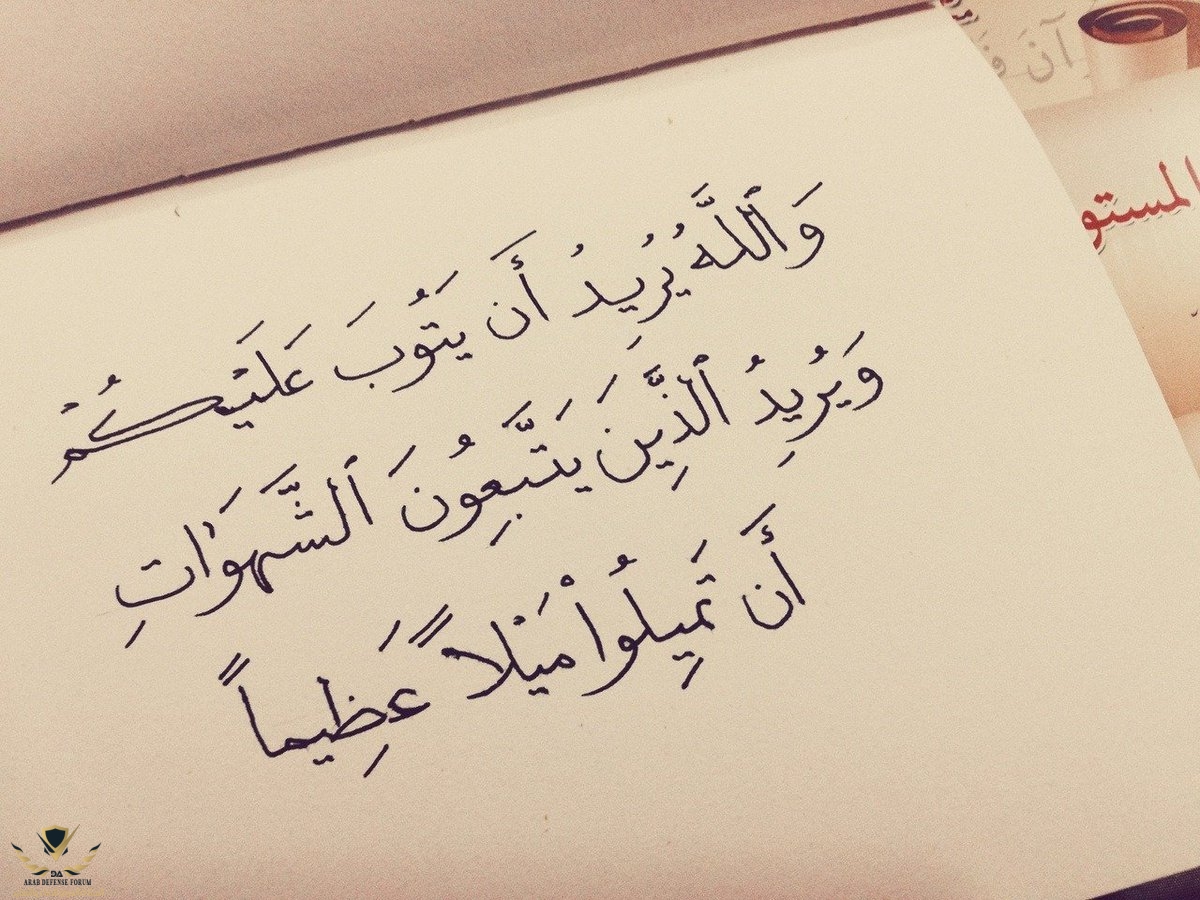 وَٱللَّهُ يُرِيدُ أَن يَتُوبَ عَلَيْكُمْ
وَيُرِيدُ ٱلَّذِينَ يَتَّبِعُونَ ٱلشَّهَوَٰتِ
أَن تَمِيلُوا۟ مَيْلاً عَظِيماً
ARAB DEFENSE FORUM